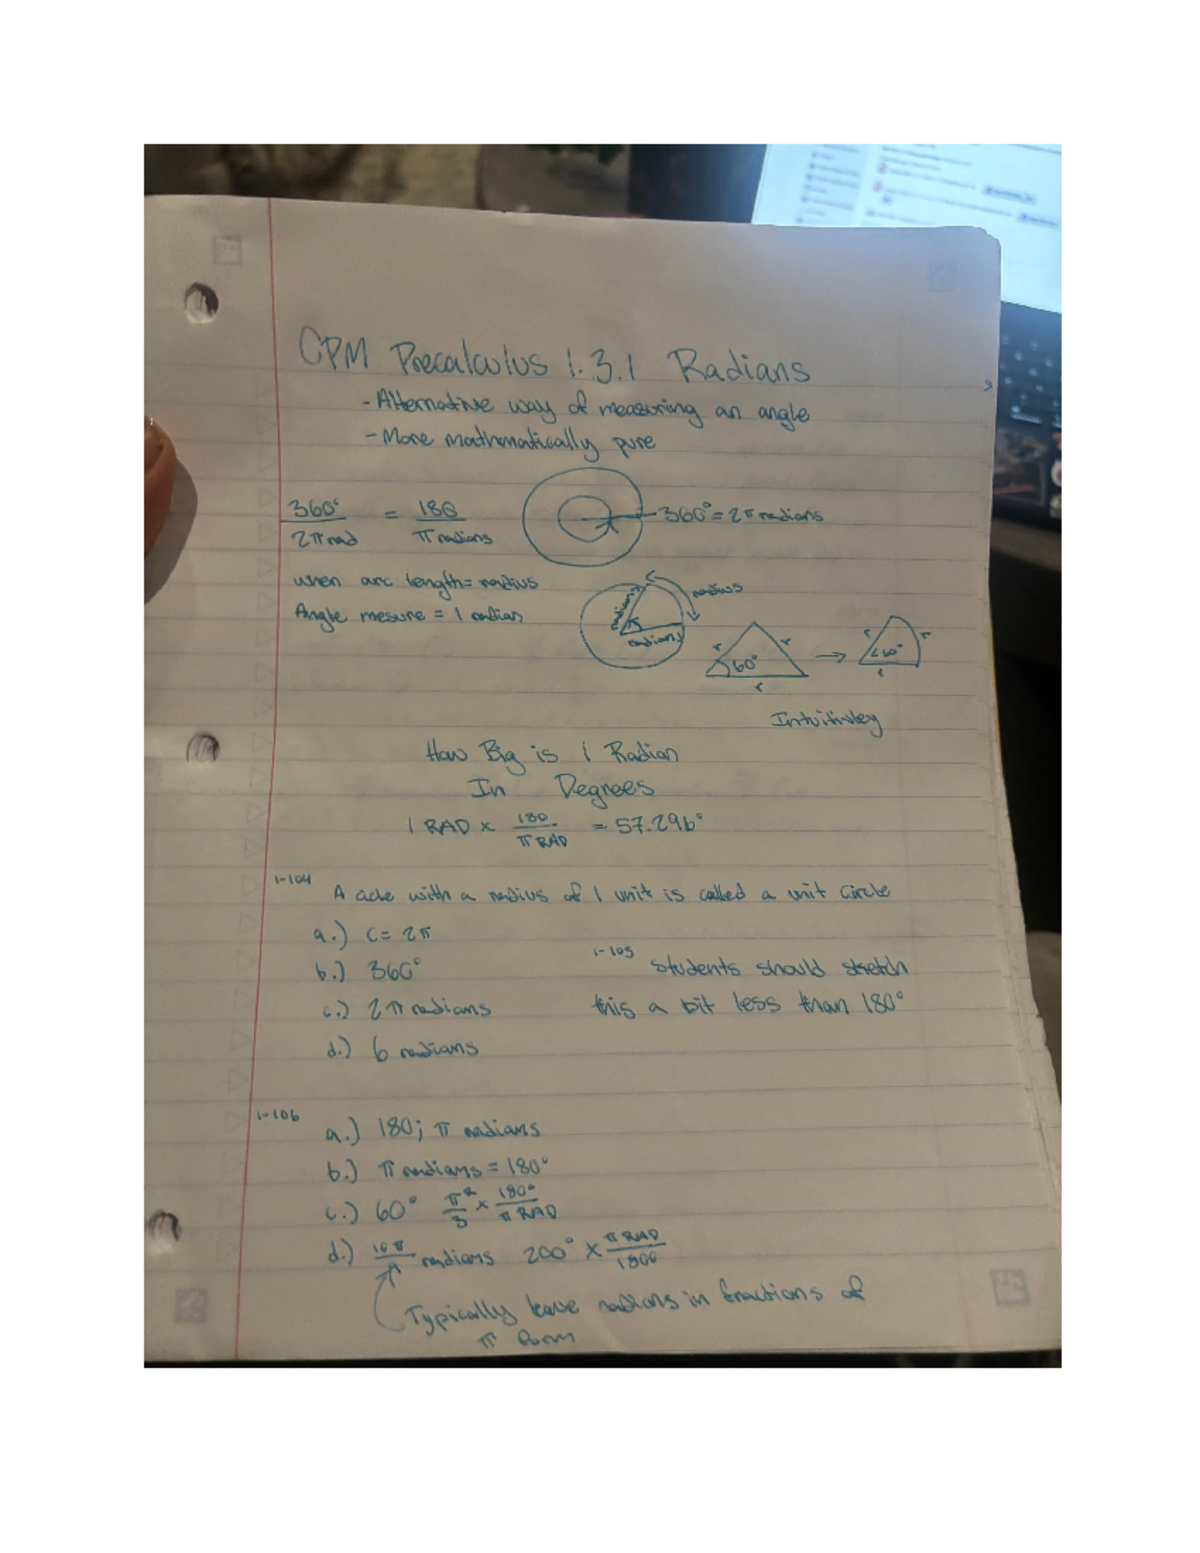 CPM Precalculus 1.3.1 Radians
- Alternative way of measuring an angle
- More mathematically pure
360° / 2π rad = 180 / π radians
360° = 2π radians
when arc length = radius
Angle mesure = 1 radian
radius
radians
radians
r r
60°
r
→
r r
60°
r
Intuitivley
How Big is 1 Radian
In Degrees
1 RAD × 180 / π RAD = 57.296°
1-104
A circle with a radius of 1 unit is called a unit circle
a.) C = 2π
b.) 360°
c.) 2π radians
d.) 6 radians
1-105 Students should stretch
this a bit less than 180°
1-106
a.) 180; π radians
b.) π radians = 180°
c.) 60° π/3 × 180° / π RAD
d.) 10π/9 radians 200° × π RAD / 180°
Typically leave radians in fractions of
π form